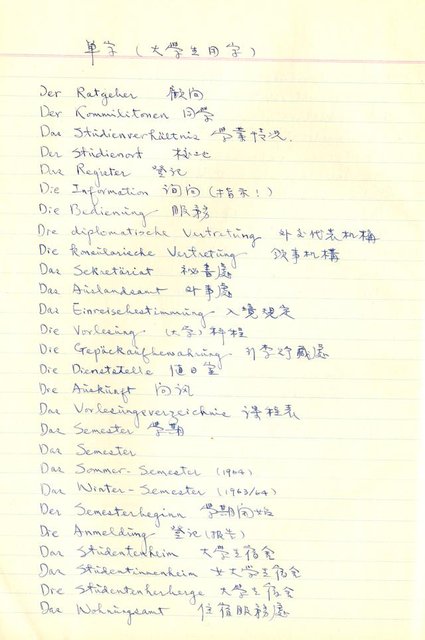 單字 (大學生用字)
Der Ratgeber 顧問
Der Kommilitonen 同學
Das Studienverhältnis 學業情况.
Der Studienort 校址
Das Register 登记
Die Information 询问 (指示!)
Die Bedienung 服務
Die diplomatische Vertretung 外交代表机構
Die konsularische Vertretung 领事机構
Das Sekretariat 秘書處
Das Auslandsamt 外事處
Das Einreisebestimmung 入境規定
Die Vorlesung (大学) 科程
Die Gepäckaufbewahrung 行李貯藏處
Die Dienststelle 值日室
Die Auskunft 问讯
Das Vorlesungsverzeichnis 课程表
Das Semester 學期
Das Semester
Das Sommer-Semester (1964)
Das Winter-Semester (1963/64)
Der Semesterbeginn 學期開始
Die Anmeldung 登记 (报告)
Das Studentenheim 大學生宿舍
Das Studentinnenheim 女大學生宿舍
Die Studentenherberge 大學生宿舍
Das Wohnungsamt 住宿服務處